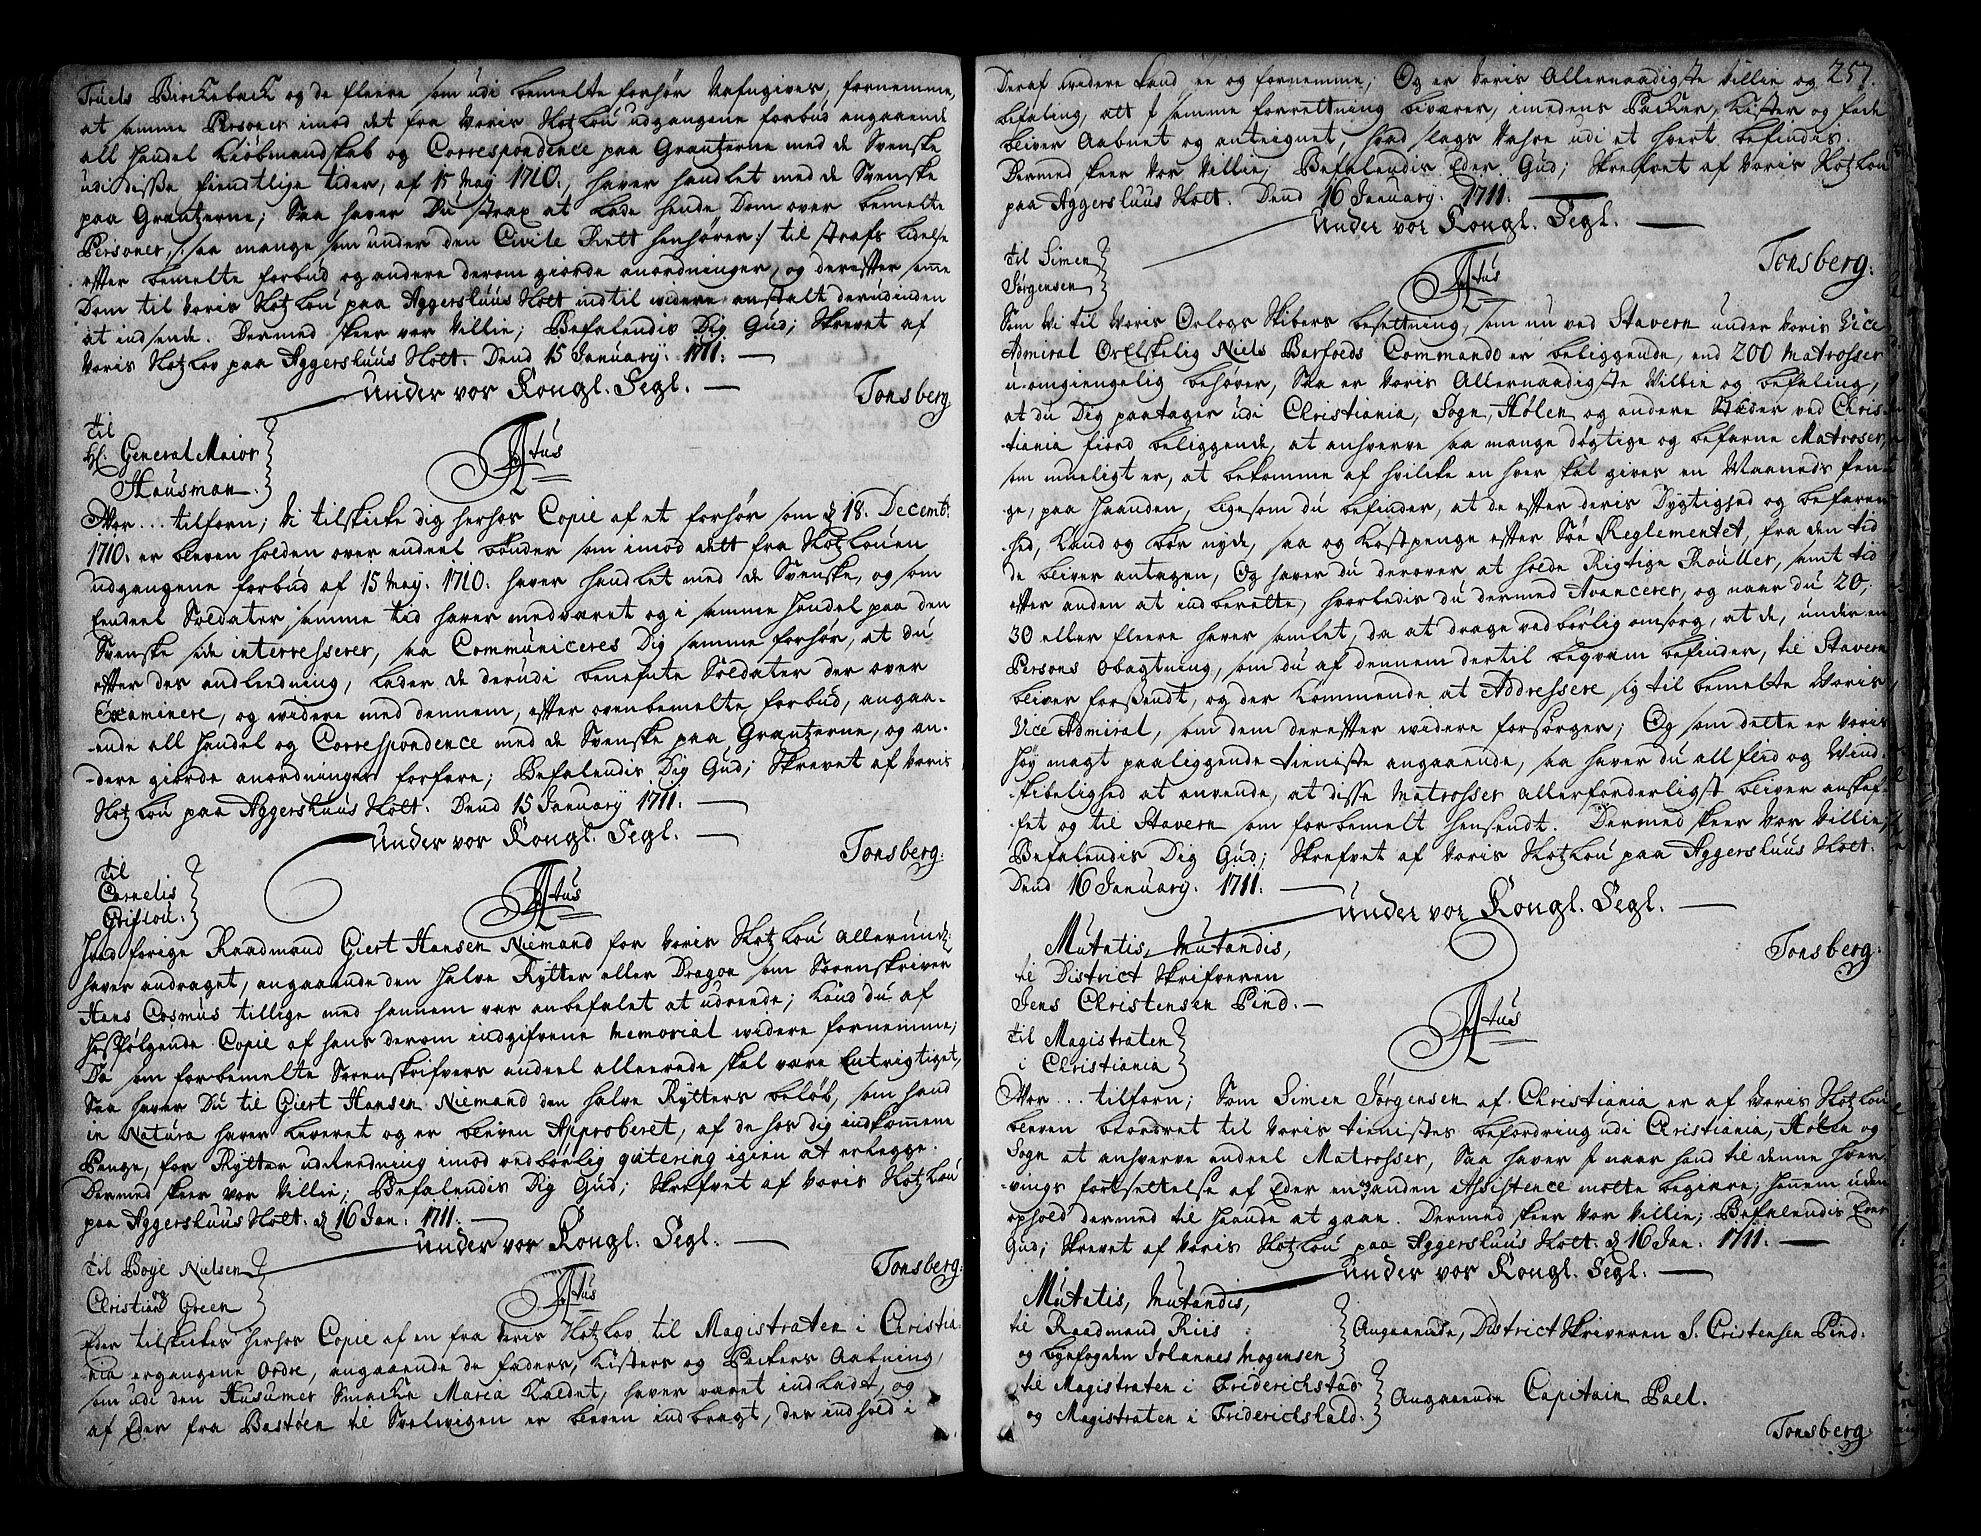 Truels Birchebach og de fleere som udi bemelte forhør Nafngives, fornemme,
at samme Personer imod det fra Voris Slotzlou udgangene forbud angaaende
all Handel Kiøbmandskab og Correspondence paa Grantzerne med de Svenske
udi diße fiendtlige tider, af 15 May 1710, haver handlet med de Svenske
paa Grantzerne; Saa haver Du strax at lade hende Dom over bemelte
Personer, /: saa mange som under den Civile Rett henhører :/ til strafs lidelse
efter bemelte forbud og andere derom giorde anordninger, og derefter same
Dom til Voris Slotzlou paa Aggershuus Slott indtil widere anstalt derudinden
at indsende. Dermed skeer vor Villie; Befalendis Dig Gud; Skrevet af
Voris Slotzlov paa Aggershuus Slott. Dend 15 January: 1711.
Under vor Kongl. Segl.
Tonsberg
Til
Hr. General Maior
Hausman.
A-tus
Vor ... tilforn; Vi tilskicke dig herhos Copie af et forhør som d. 18. Decemb.
1710. er bleven holden over endeel bønder som imod dett fra Slotzlouen
udgangene forbud af 15 May. 1710. haver handlet med de Svenske, og som
Eendeel Soldater samme tid haver medværet og i samme Handel paa den
Svenske side interresserer, saa Communiceres Dig samme forhør, at du
efter des andledning, lader de derudi benefnte Soldater der over
Examinere, og widere med dennem, efter ovenbemelte forbud, angaa-
-ende all Handel og Correspondence med de Svenske paa Grantzerne, og an-
-dere giorde anordninger forfare; Befalendis Dig Gud; Skrevet af Voris
Slotzlou paa Aggershuus Slott. Dend 15 January 1711.
Under vor Kongl. Segl.
Tonsberg.
Til
Cornelis
Griflou.
A-tus
Hvad forige Raadmand Giert Hansen Niemand for Voris Slotzlou allerund:
haver andraget, angaaende den halve Rytter eller Dragon som Sorenskriver
Hans Cosmus tillige med hannem var anbefalet at udreede; Kand du af
Hosfølgende Copie af hans derom indgifvene Memorial widere fornemme;
Da som forbemelte Sorenskrifvers andeel alleerede skal være Entrigtiget,
Saa haver Du til Giert Hansen Niemand den halve Rytters beløb, som hand
in Natura haver leveret og er bleven Approberet, af de hos dig indkommen
Penge, for Rytter udreedning imod vedbørlig qvitering igien at erlegge.
Dermed skeer vor Villie; Befalendis Dig Gud; Skrevet af Voris Slotzlou
paa Aggershuus Slott. d. 16 Jan: 1711.
Under vor Kongl. Segl.
Tonsberg.
Til Boye Nielsen
Christian Green
A-tus
Eder tilskickes herhos Copie af en fra Voris Slotzlov til Magistraten i Christia-
nia ergangene Ordre, angaaende de faders, Kisters og Packers Aabning,
som udi den Husumer Smacke Maria kaldet, haver været indladt, og
af Eder fra Bastøen til Svelwigen er bleven indbragt, der indhold i
257.
Deraf widere kand see og fornemme, Og er Voris Allernaadigste Villie og
befaling, att I samme forrettning biværer, imedens Packer, Kister og fade
bliver Aabnet og antegnet, hvad slags Vahre udi et hvert befindis.
Dermed skeer Vor Villie; Befalendis Eder Gud; Skrefvet af Voris Slotzlou
paa Aggershuus Slott. Dend 16 January. 1711.
Under vor Kongl. Segl.
Tonsberg.
Til Simen
Jørgensen
A-tus
Som Vi til Voris Orlogs Skibers besettning, som nu ved Stavern under Voris Vice
Admiral Os Elskelig Niels Barfoeds Commando er beliggende, end 200 Matrosser
u-omgiengelig behøver, Saa er Voris Allernaadigste Villie og befaling,
at du Dig paatager udi Christiania, Sogn, Hølen og andere Stæder ved Chris-
tiania fiord beliggende, at anhverve saa mange døgtige og befarne Matroser,
som mueligt er, at bekomme af hvilcke en hver skal gives en Maaneds Pen-
ge, paa Haanden, ligesom du befinder, at de efter deris Dygtighed og befaren-
hed, Kand og bør nyde, saa og Kostpenge efter Søe Reglementet, fra den tid
de bliver antagen, Og haver du derover at holde Rigtige Rouller, samt tid
efter anden at indberette, hvorledis du dermed Avancerer, og naar du 20,
30 eller fleere haver samlet, da at drage vedbørlig omsorg, at de, under en
Persons Obagtning, som du af dennem dertil beqvæm befinder, til Stavern
bliver forsendt, og der kommende at Addressere sig til bemelte Voris
Vice Admiral, som dem derefter widere forsørger; Og som dette er Voris
Høy magt paaliggende tieniste angaaende, saa haver du all flid og Wind-
-skibelighed at anvende, at disse Matrosser allerforderligst bliver anskaf-
fet og til Stavern som forbemelt hensendt. Dermed skeer Vor Villie,
Befalendis Dig Gud; Skrefvet af Voris Slotzlou paa Aggershuus Slott.
Dend 16 January. 1711.
Under vor Kongl. Segl.
Tonsberg.
Mutatis, Mutandis,
til District Skrifveren
Jens Christensen Pind.
Til Magistraten
i Christiania
A-tus
Vor ... tilforn; Som Simen Jørgensen af Christiania er af Voris Slotzlou
bleven beordret til Voris tienistes befordring udi Cristiania, Hølen og
Sogn at anhverve endeel Matrosser, Saa haver I naar hand til denne hver-
-vings fortsettelse af Eder en og anden Assistence motte begiere; hannem uden
ophold dermed til haande at gaae. Dermed skeer Vor Villie; Befalendis Eder
Gud; Skrevet af Voris Slotzlou paa Aggershuus Slott. d. 16 Jan. 1711.
Under vor Kongl. Segl.
Mutatis, Mutandis,
til Raadmand Riis
og byefogden Johannes Mogensen
Angaaende, District Skriveren J. Cristensen Pind.
til Magistraten i Friderichstad
og Magistraten i Friderichshald.
Angaaende Capitain Pael.
Tonsberg.